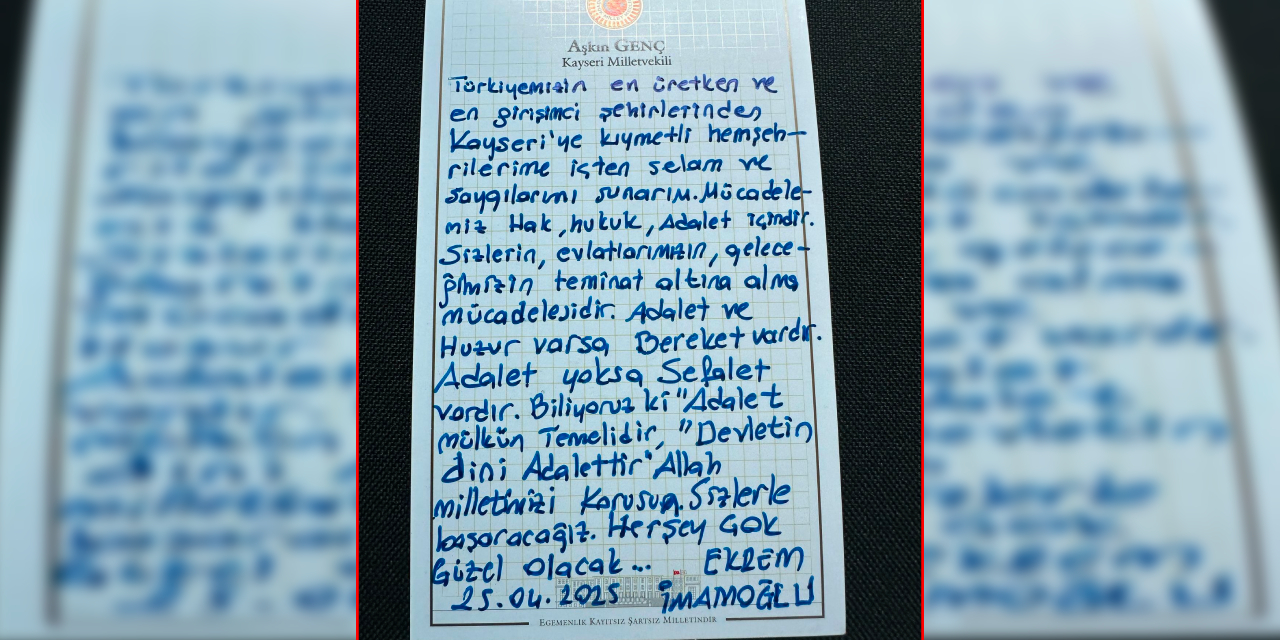 Aşkın GENÇ
Kayseri Milletvekili
Türkiyemizin en üretken ve
en girişimci şehirlerinden
Kayseri'ye kıymetli hemşeh-
rilerime içten selam ve
saygılarımı sunarım. Mücadele-
miz Hak, hukuk, Adalet içindir.
Sizlerin, evlatlarımızın, gelece-
ğimizin teminat altına alma
mücadelesidir. Adalet ve
Huzur varsa Bereket vardır.
Adalet yoksa Sefalet
vardır. Biliyoruz ki "Adalet
mülkün Temelidir, "Devletin
dini Adalettir" Allah
milletimizi Korusun. Sizlerle
başaracağız. Herşey Çok
Güzel olacak... EKREM
25.04.2025 İMAMOĞLU
EGEMENLİK KAYITSIZ ŞARTSIZ MİLLETİNDİR